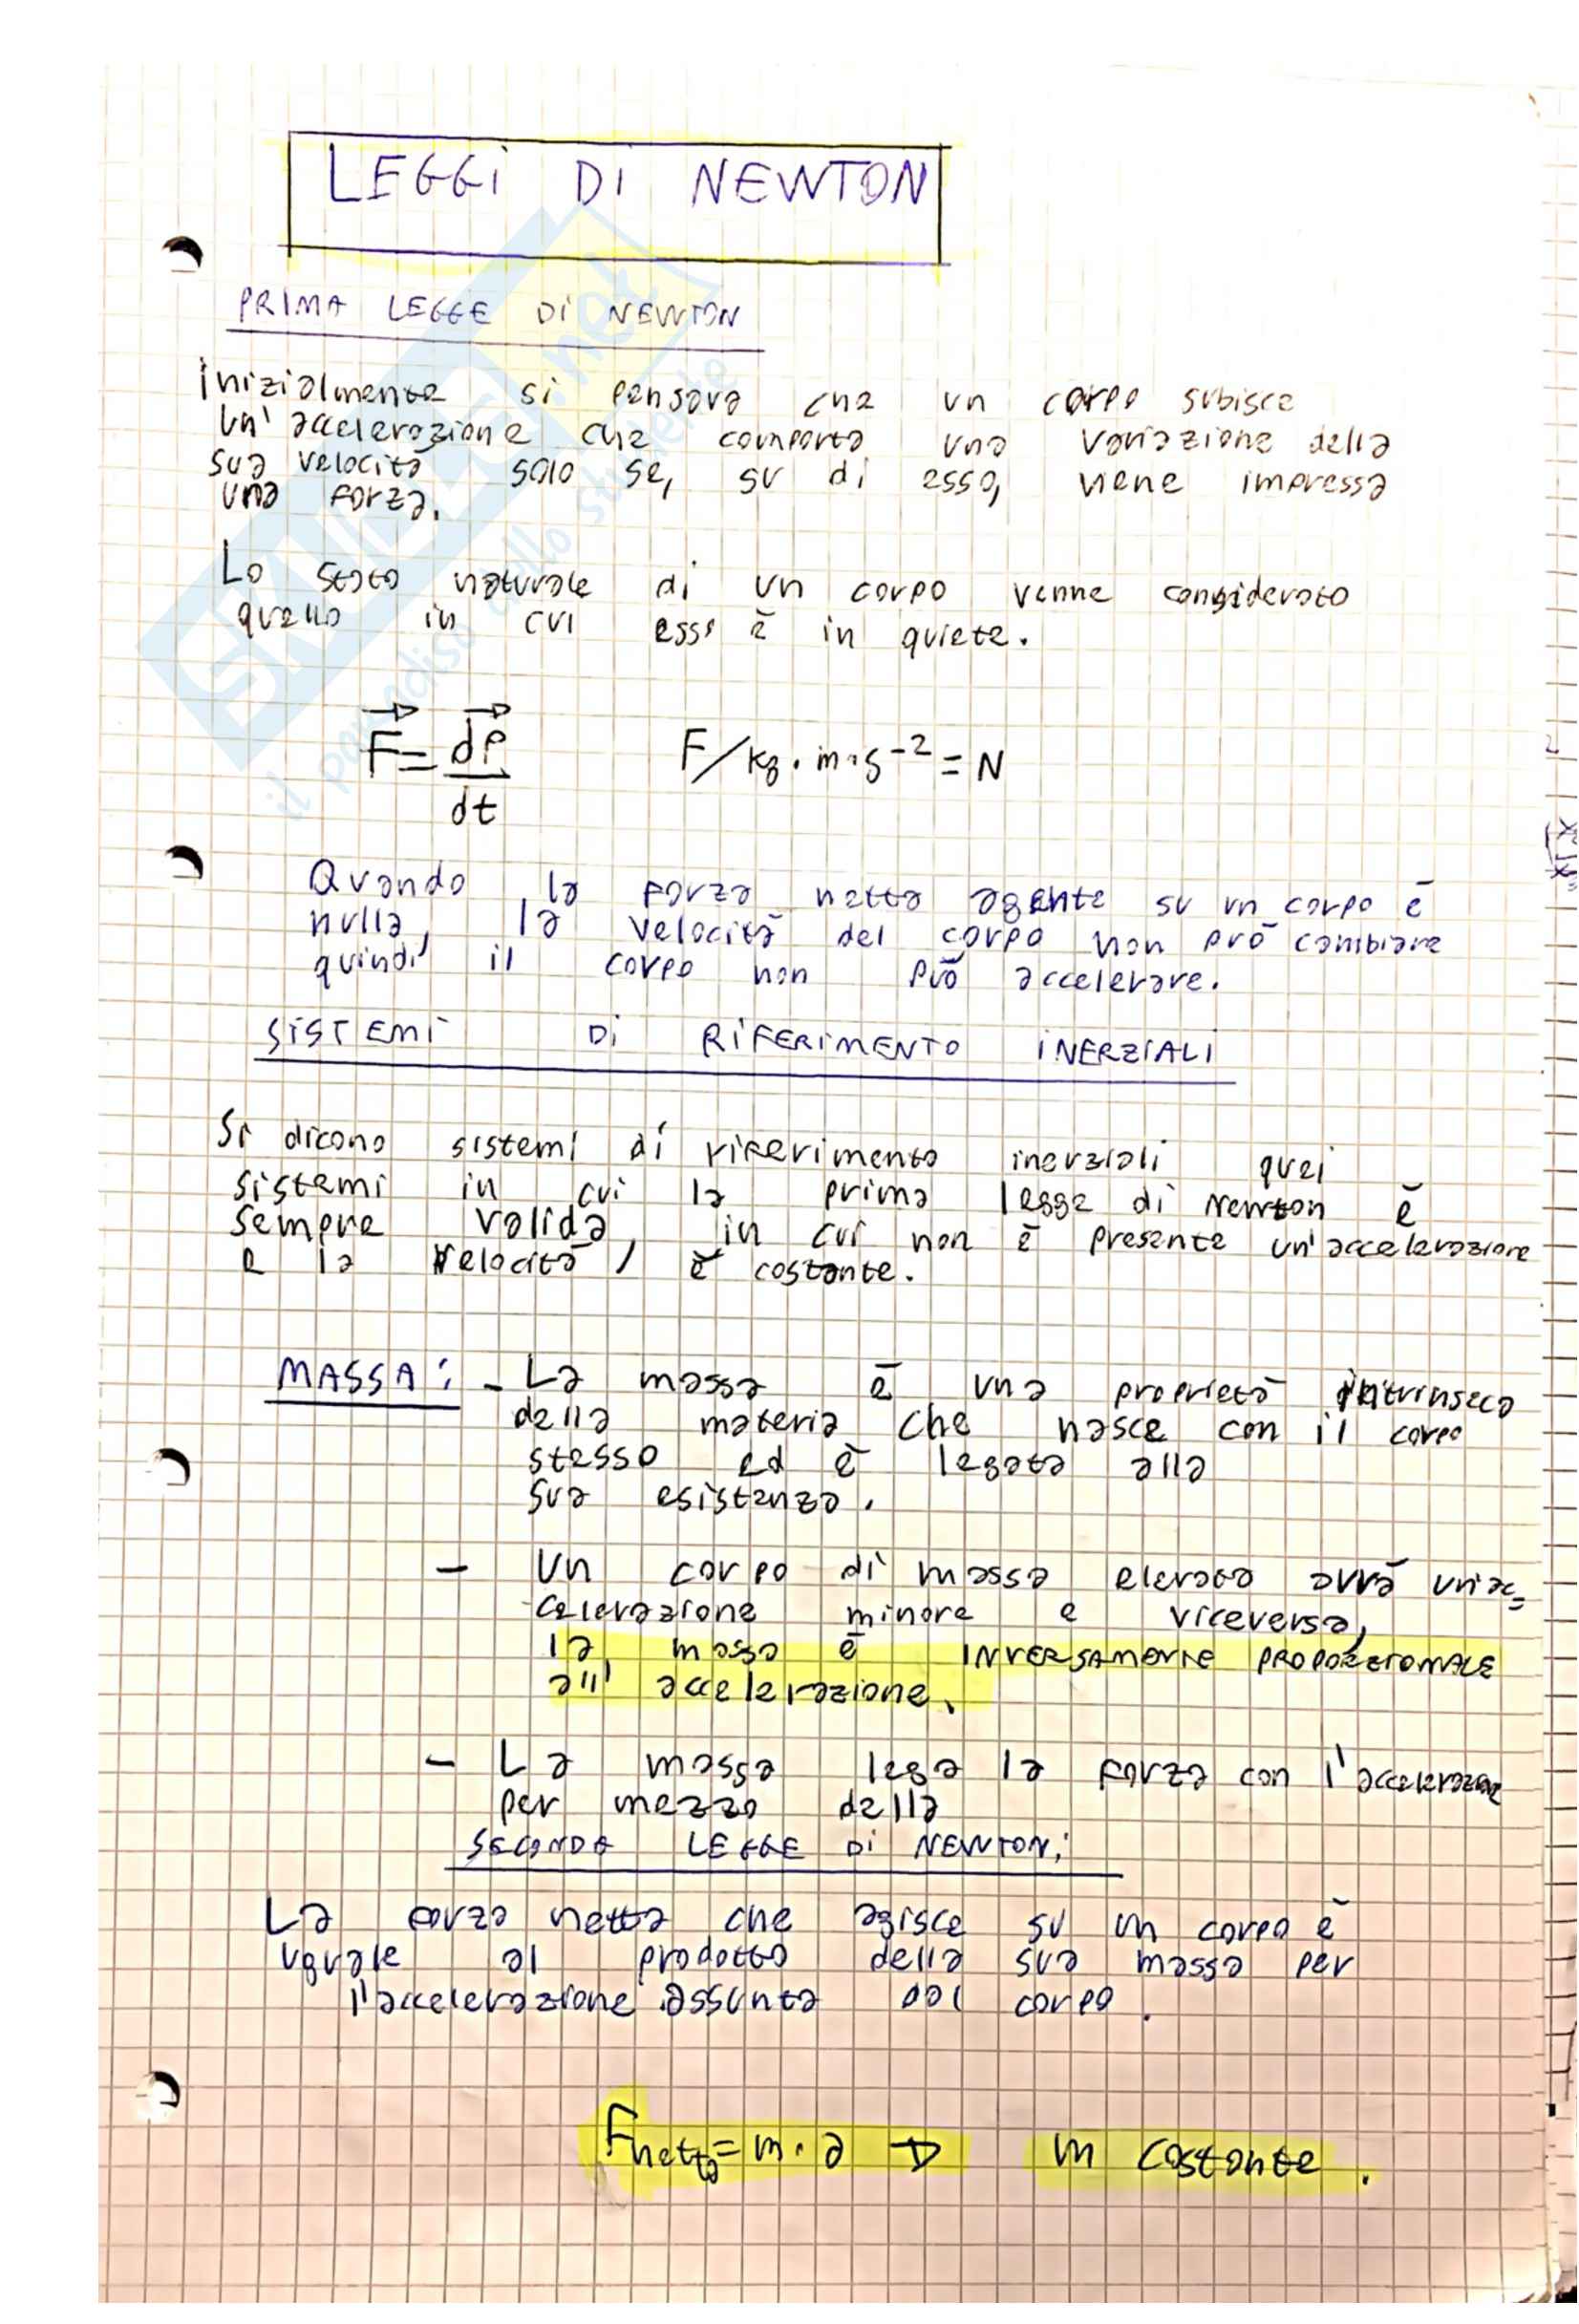 LEGGI DI NEWTON
PRIMA LEGGE DI NEWTON
inizialmente si pensava che un corpo subisce
un'accelerazione che comporta una variazione della
sua velocità solo se, su di esso, viene impressa
una forza.
Lo stato naturale di un corpo venne considerato
quello in cui esso è in quiete.
F = dp
dt
F/kg·m·s⁻² = N
Quando la forza netta agente su un corpo è
nulla, la velocità del corpo non può cambiare
quindi il corpo non può accelerare.
SISTEMI DI RIFERIMENTO INERZIALI
Si dicono sistemi di riferimento inerziali quei
sistemi in cui la prima legge di Newton è
sempre valida, in cui non è presente un'accelerazione
e la velocità è costante.
MASSA: - La massa è una proprietà intrinseca
della materia che nasce con il corpo
stesso ed è legata alla
sua esistenza.
- Un corpo di massa elevata avrà un'ac=
celerazione minore e viceversa,
la massa è INVERSAMENTE PROPORZIONALE
all'accelerazione.
- La massa lega la forza con l'accelerazione
per mezzo della
SECONDA LEGGE DI NEWTON:
La forza netta che agisce su un corpo è
uguale al prodotto della sua massa per
l'accelerazione assunta dal corpo.
Fnetta = m·a → m costante.
SKUOLA.net
il paradiso dello studente